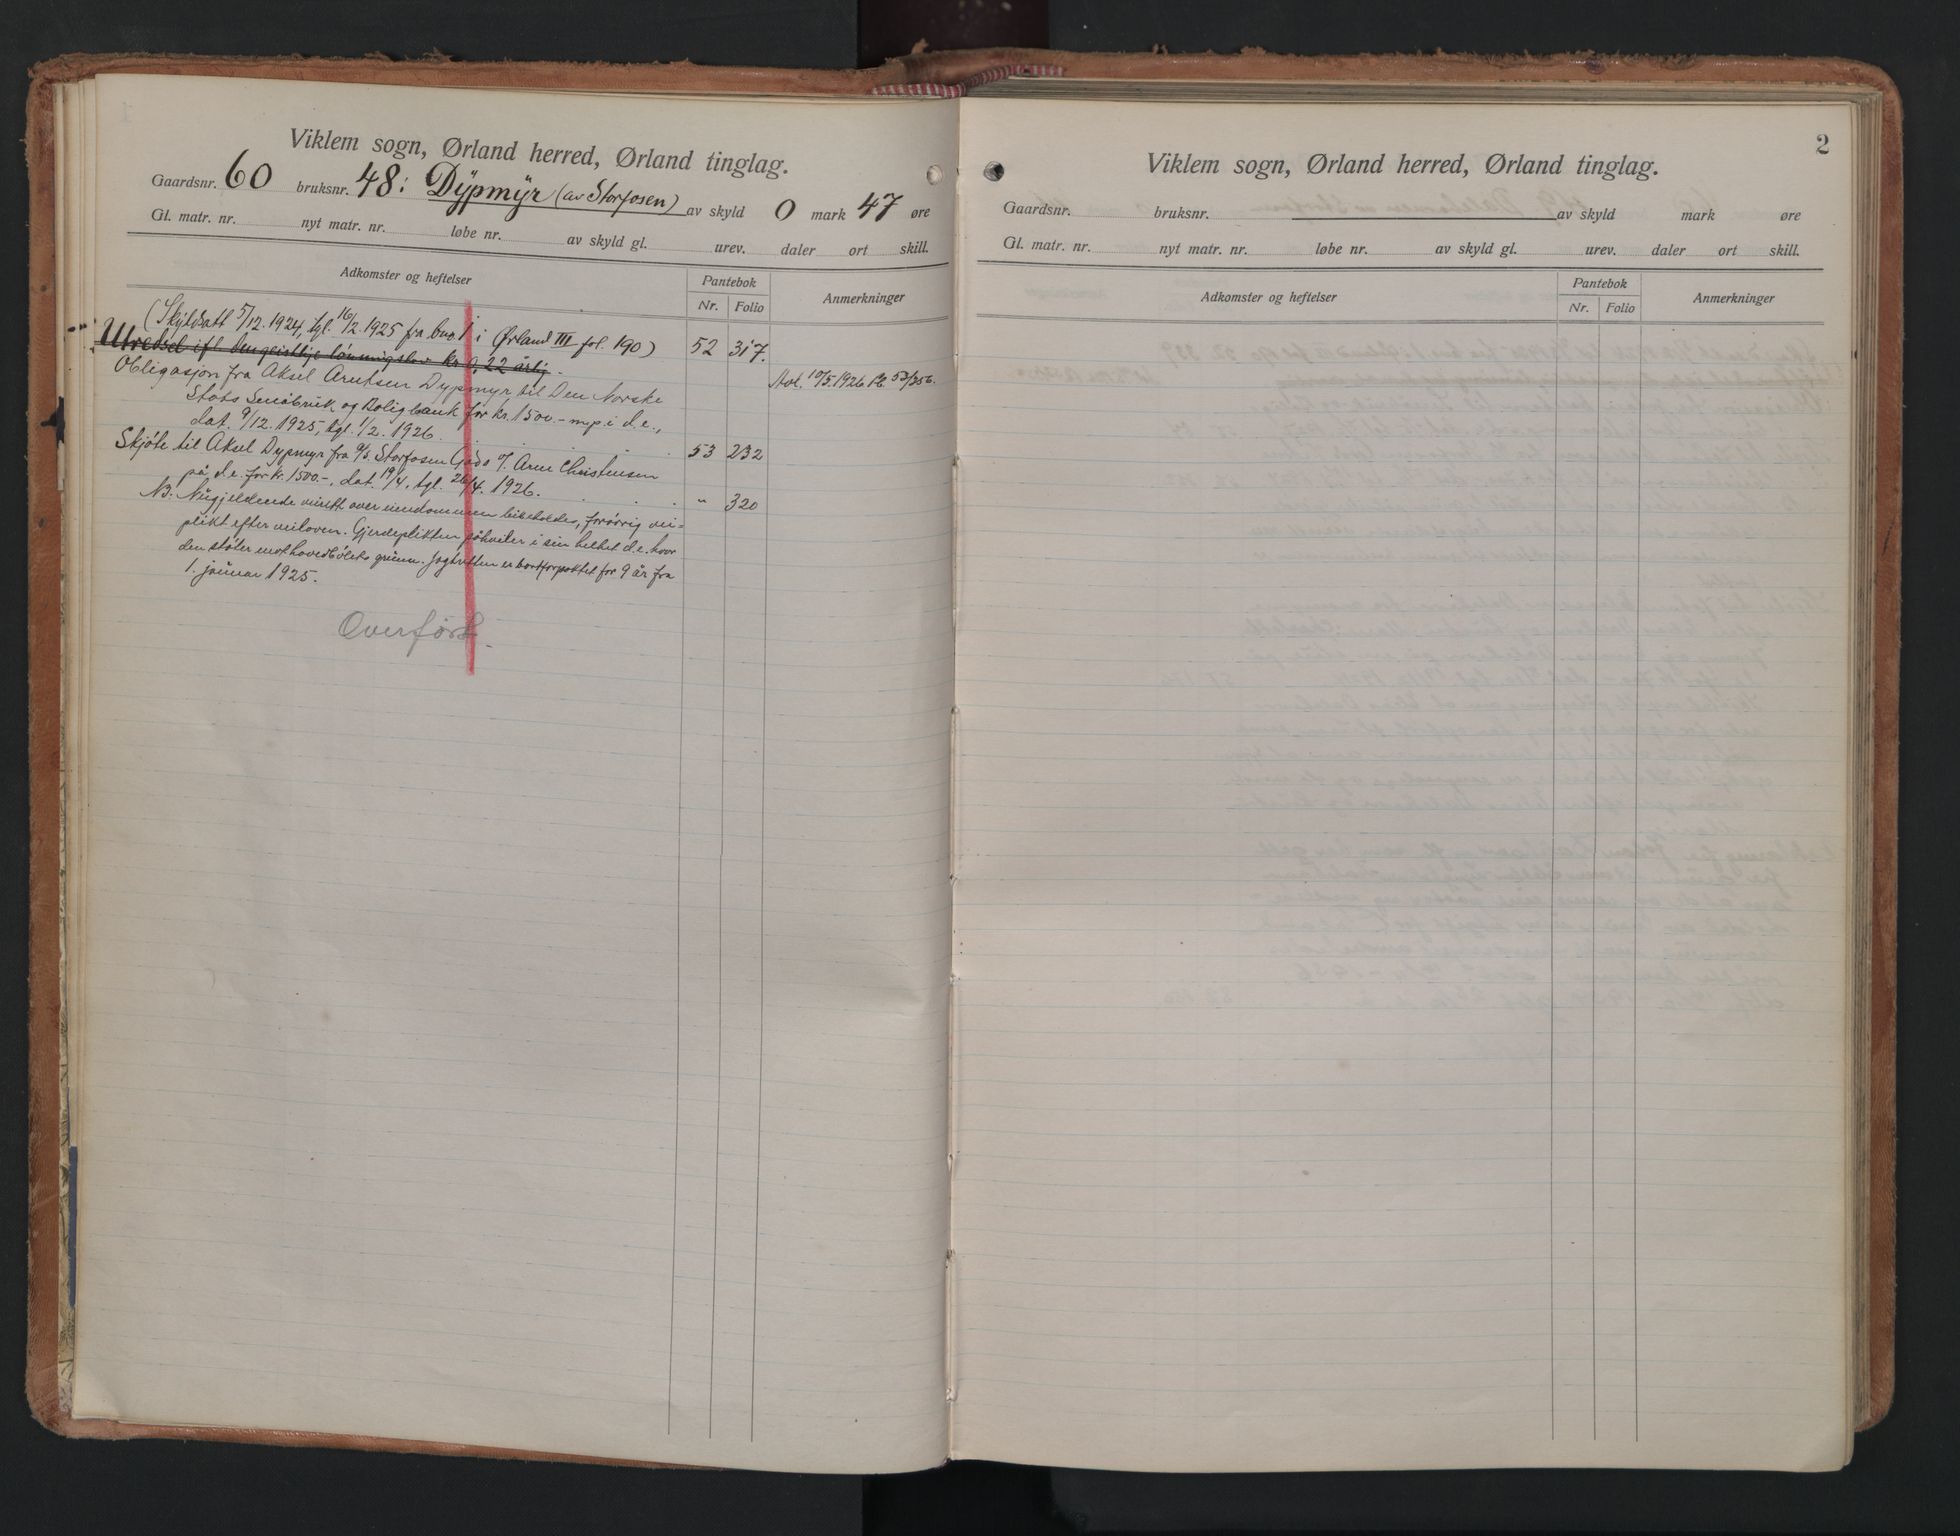 Viklem sogn, Ørland herred, Ørland tinglag.
Gaardsnr. 60 bruksnr. 48: Dypmyr (av Storfosen) av skyld 0 mark 47 øre
Gl. matr. nr. nyt matr. nr. løbe nr. av skyld gl. urev. daler ort skill.
Adkomster og heftelser Pantebok Anmerkninger
Nr. Folio
(Skyldsatt 5/12.1924, tgl. 16/2.1925 fra bno. 1 i Ørland III fol. 190) 52 317.
Utredsel ifl. den geistlige lønningslov kr. 0,22 årlig.
Obligasjon fra Aksel Arntsen Dypmyr til Den Norske Avl. 10/5.1926 Pb. 53/356.
Stats Småbruk og Boligbank for kr. 1500.- m.p. i d.e.,
dat. 9/12.1925, tgl. 1/2.1926. 53 232
Skjøte til Aksel Dypmyr fra A/S. Storfosen Gods v/ Arne Christensen
på d.e. for kr. 1500.-, dat. 19/4, tgl. 26/4.1926. " 320
NB. Nugjeldende veirett over eiendommen bibeholdes, forøvrig vei=
plikt efter veiloven. Gjerdeplikten påhviler i sin helhet d.e. hvor
den støter mot hovedbølets grunn. Jagtretten er bortforpaktet for 9 år fra
1. januar 1925.
Overført.
2
Viklem sogn, Ørland herred, Ørland tinglag.
Gaardsnr. bruksnr. av skyld mark øre
Gl. matr. nr. nyt matr. nr. løbe nr. av skyld gl. urev. daler ort skill.
Adkomster og heftelser Pantebok Anmerkninger
Nr. Folio